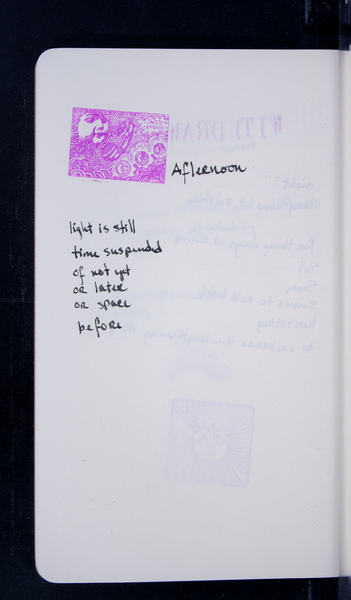 Afternoon
light is still
time suspended
of not yet
or later
or space
before